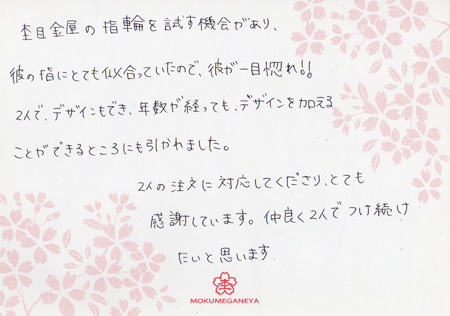 杢目金屋の指輪を試す機会があり、
彼の指にとても似合っていたので、彼が一目惚れ!!
2人で、デザインもでき、年数が経っても、デザインを加える
ことができるところにも引かれました。
2人の注文に対応してくださり、とても
感謝しています。仲良く2人でつけ続け
たいと思います.
杢
MOKUMEGANEYA